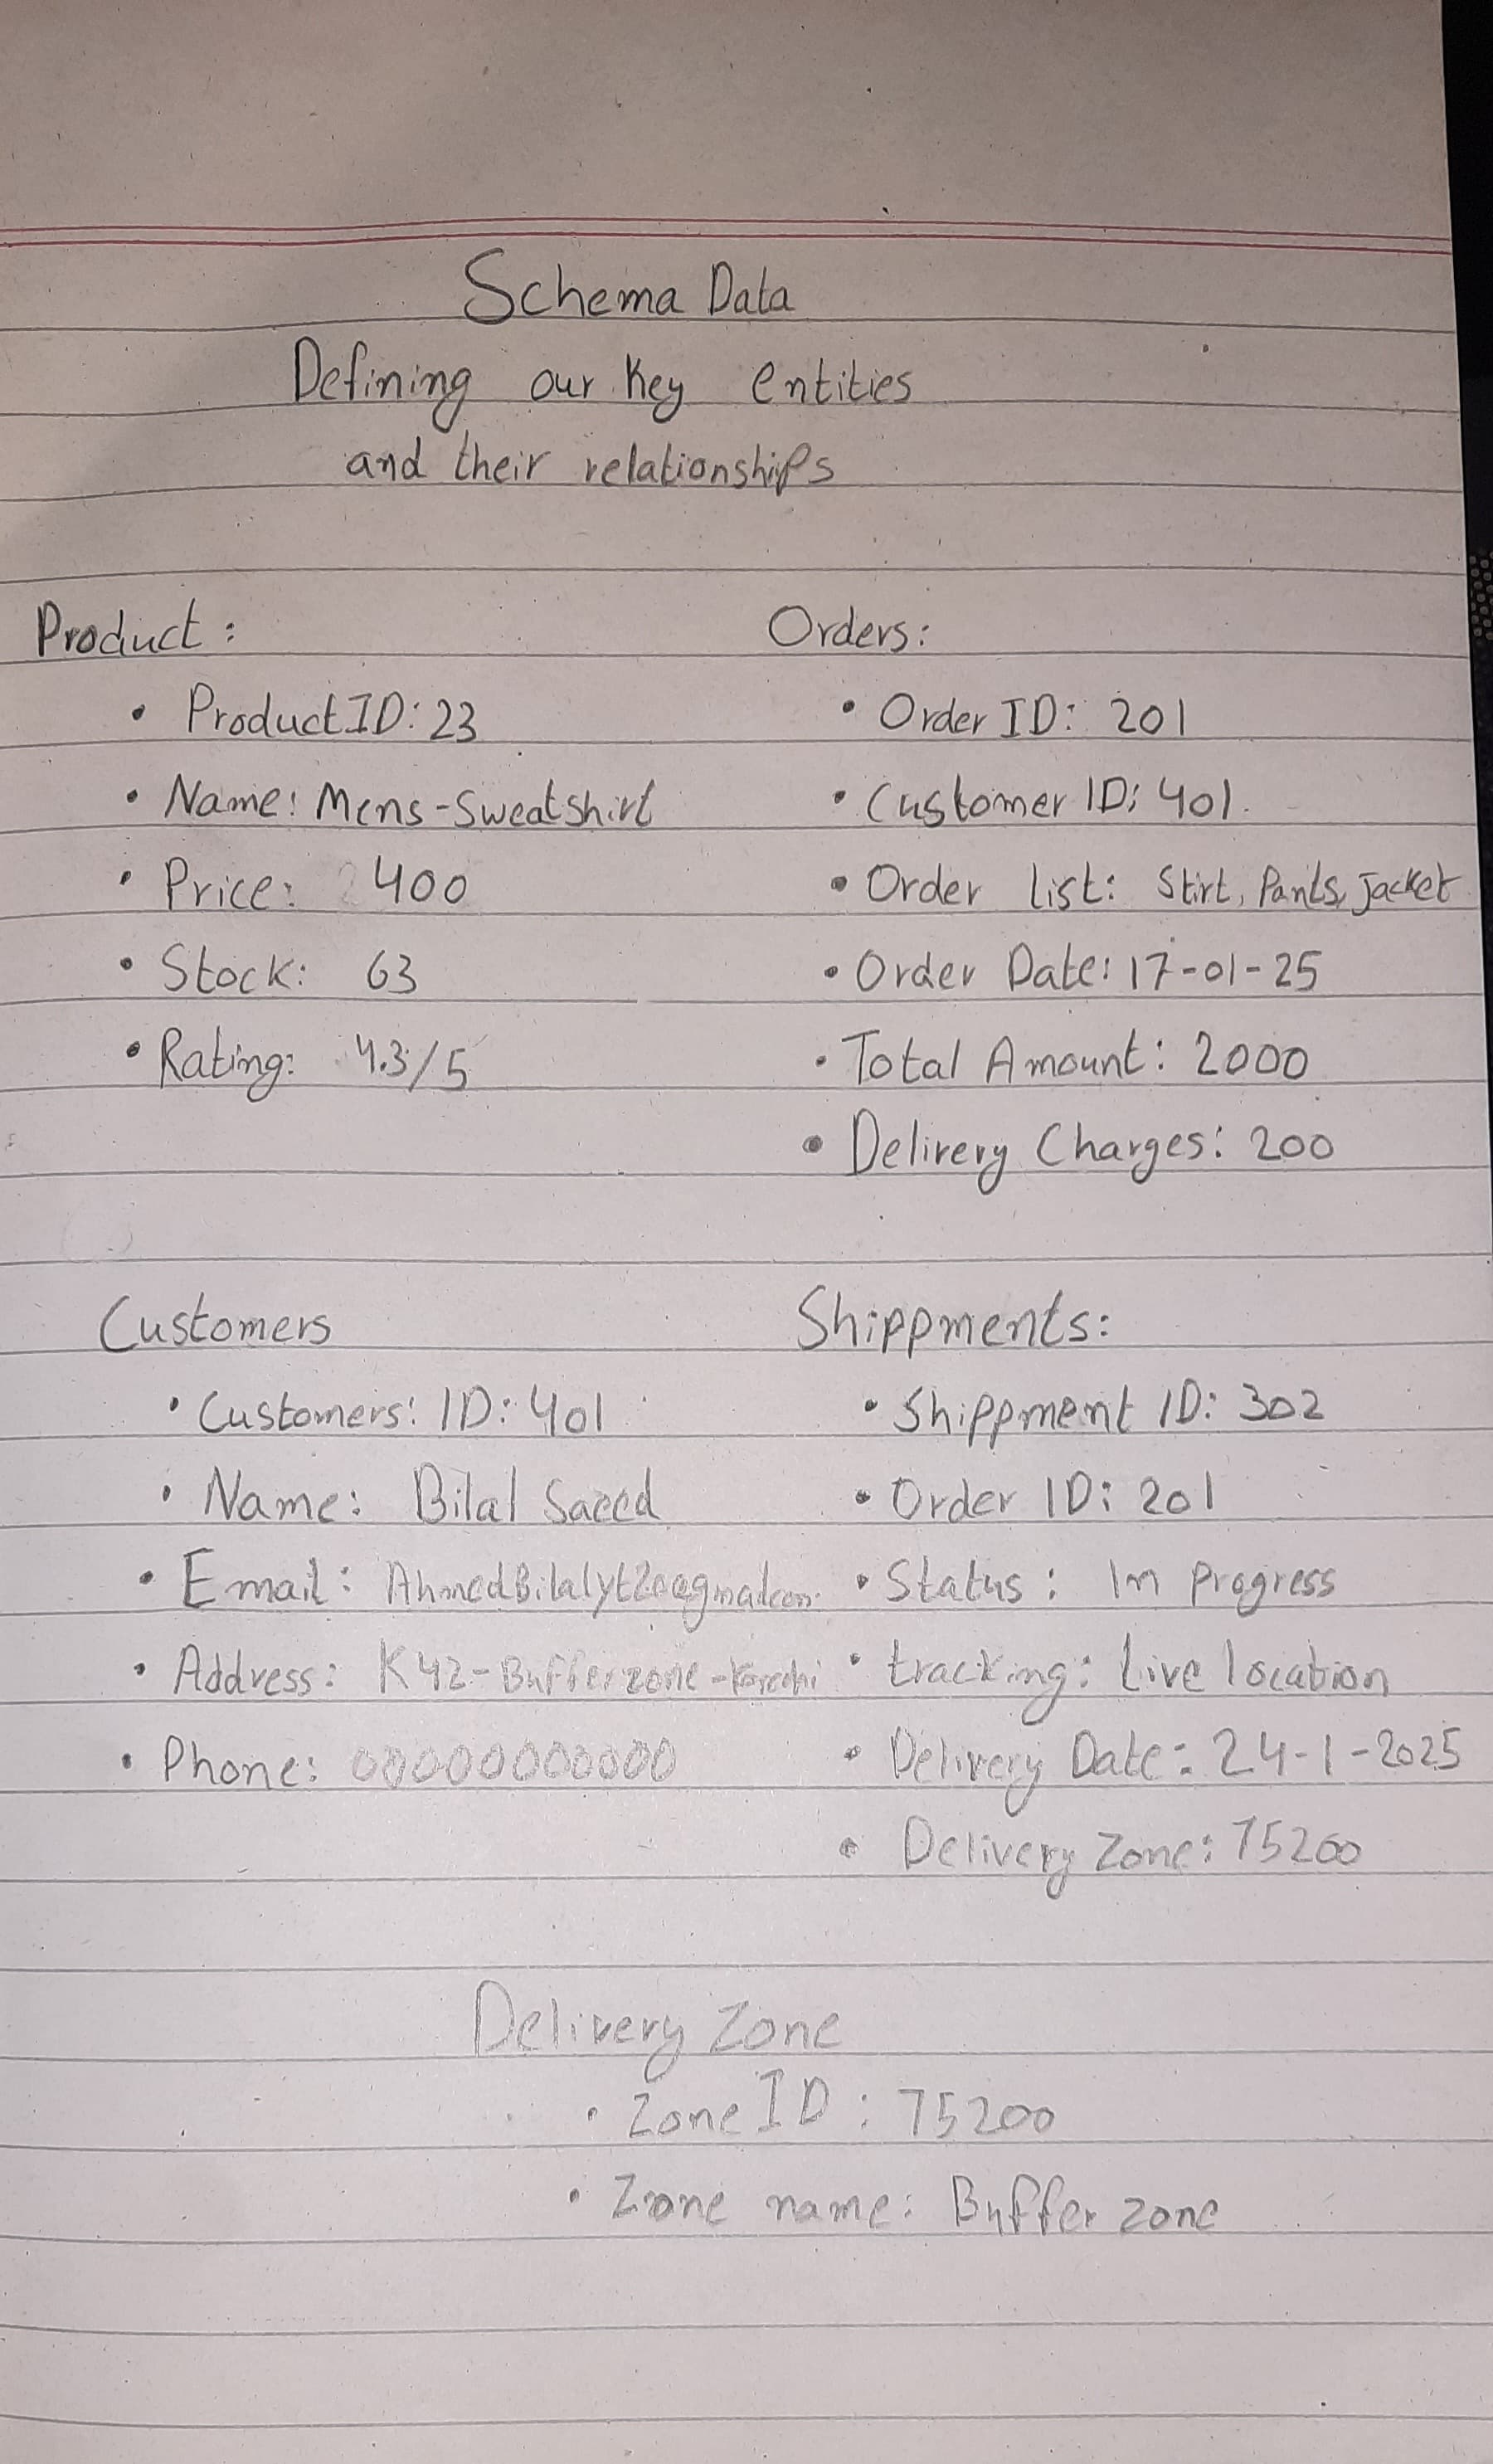 Schema Data
Defining our Key entities
and their relationships
Product :
• ProductID: 23
• Name: Mens-Sweatshirt
• Price: 400
• Stock: 63
• Rating: 4.3/5
Orders:
• Order ID: 201
• Customer ID: 401.
• Order list: Stirt, Pants, Jacket
• Order Date: 17-01-25
• Total Amount: 2000
• Delivery Charges: 200
Customers
• Customers: ID: 401
• Name: Bilal Saeed
• Email:
• Address: K42-Bufferzone-Karachi
• Phone: 00000000000
Shippments:
• Shippment ID: 302
• Order ID: 201
• Status: In Progress
• tracking: Live location
• Delivery Date: 24-1-2025
• Delivery Zone: 75200
Delivery Zone
• Zone ID : 75200
• Zone name: Buffer zone